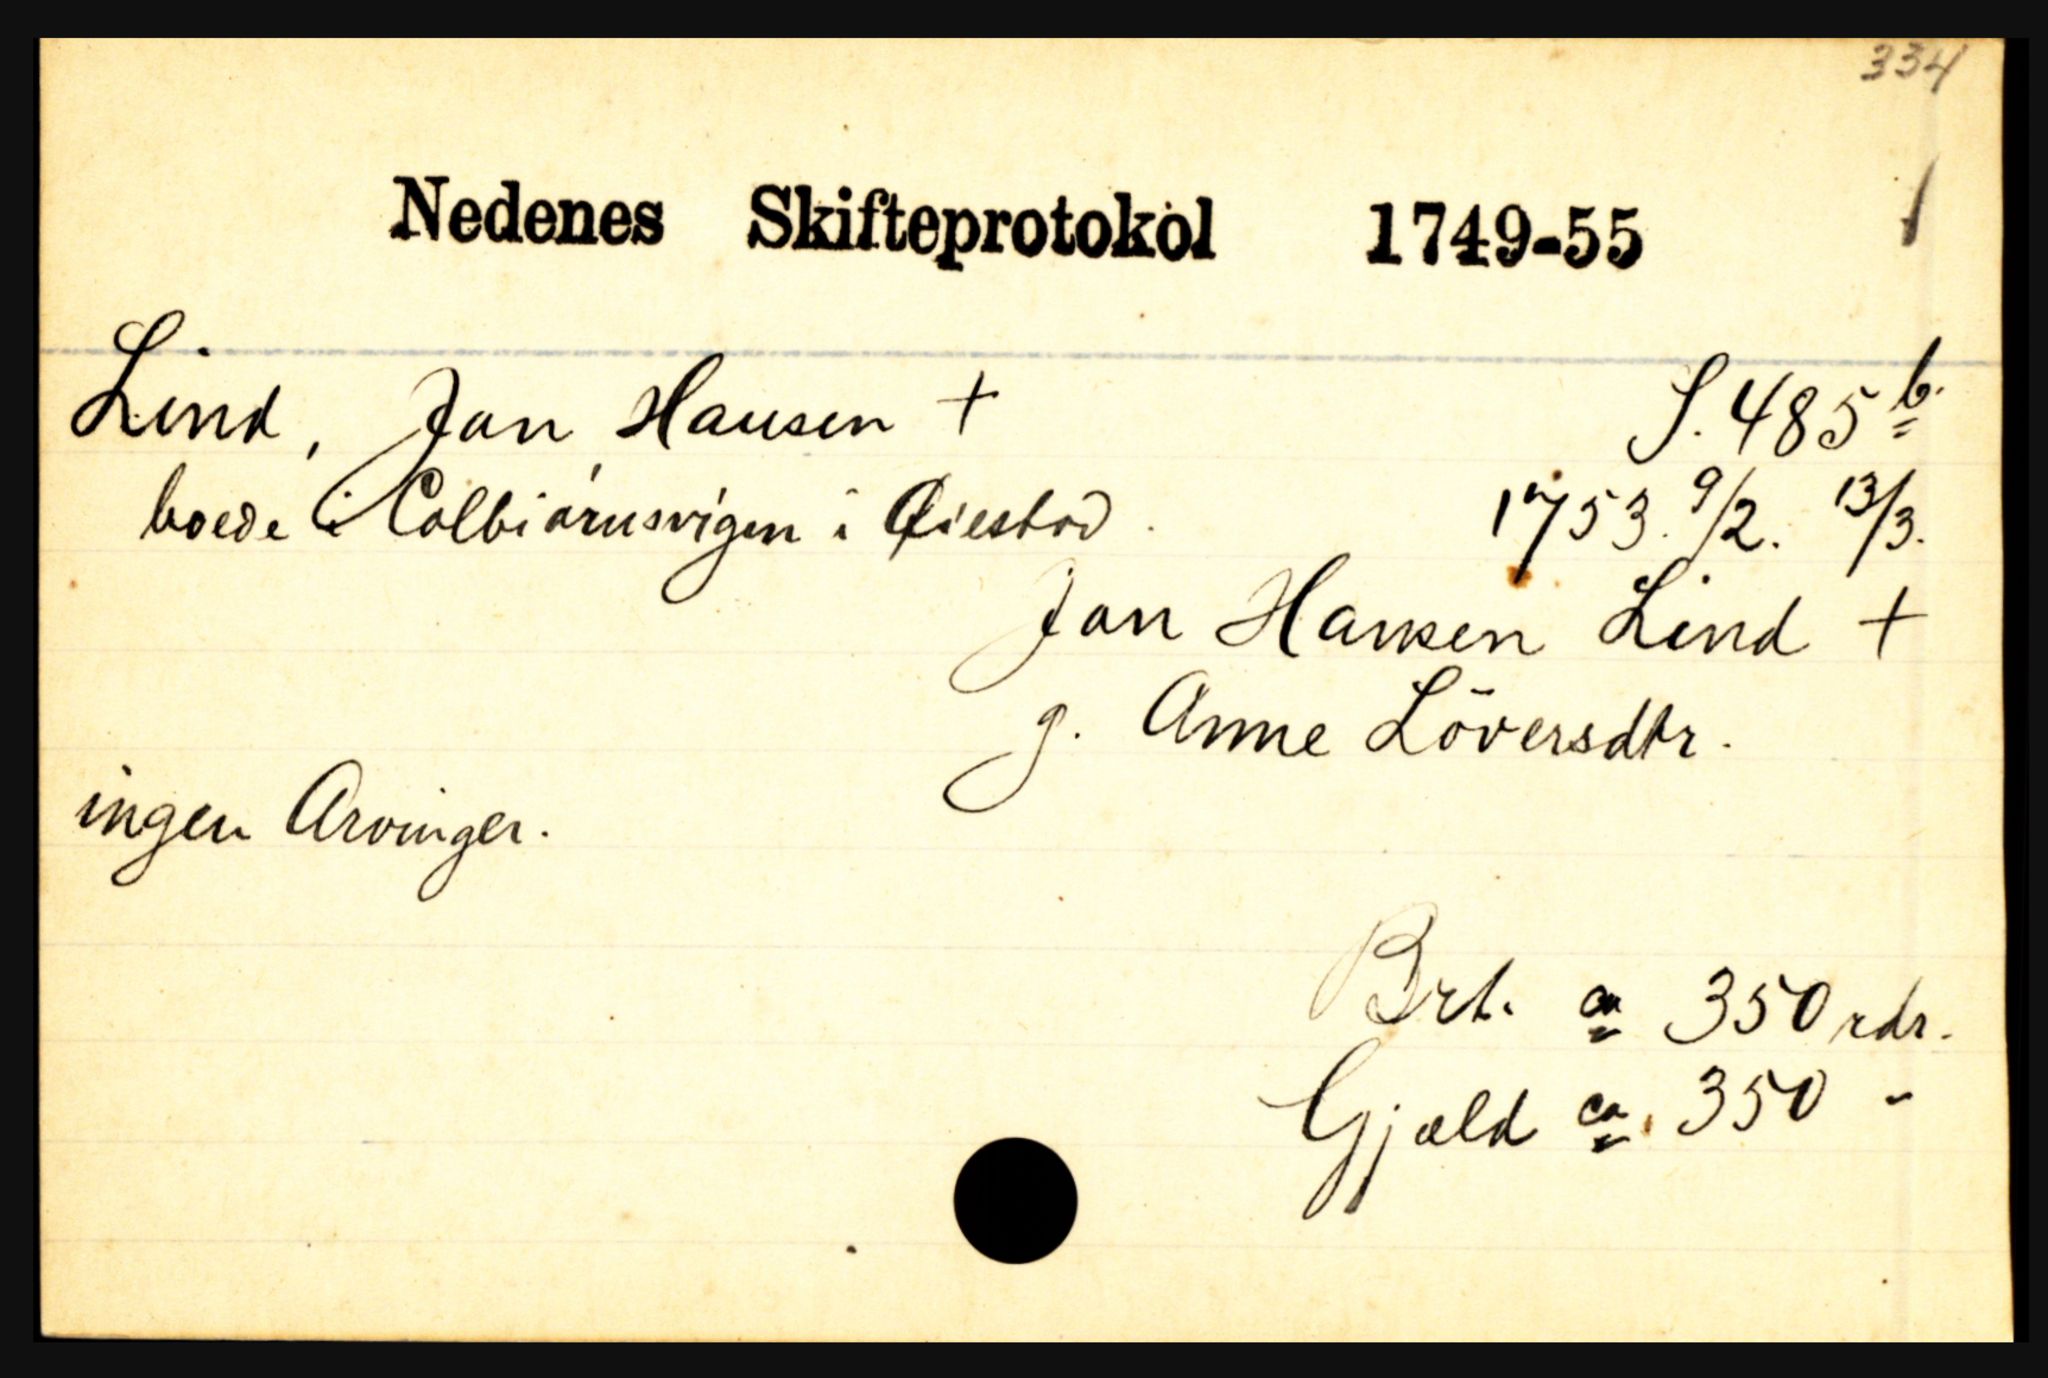 334
Nedenes Skifteprotokol 1749-55
Lind, Jan Hansen + S. 485 b.
boede i Colbiörnsvigen i Øiestad. 1753. 9/2. 13/3.
Jan Hansen Lind +
g. Anne Löversdtr.
ingen Arvinger.
Brt. ca 350 rdr.
Gjæld ca. 350 -